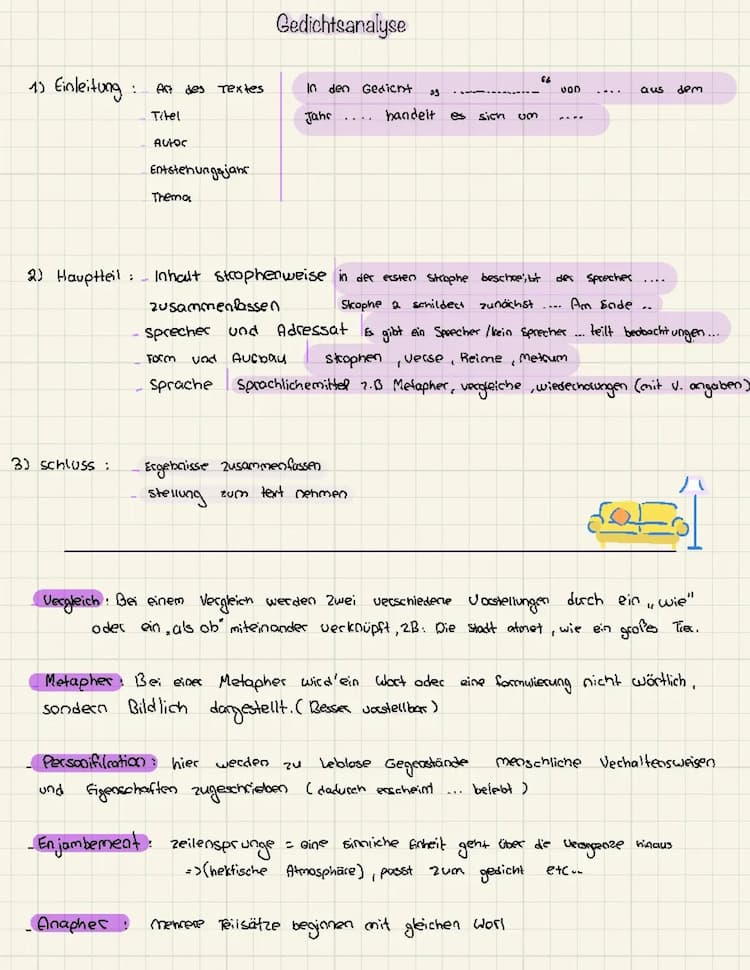 Gedichtsanalyse
1) Einleitung : - Art des Textes
In den Gedicht „ ............" von .... aus dem
- Titel
Jahr .... handelt es sich um ....
- Autor
- Entstehungsjahr
- Thema
2) Hauptteil : - Inhalt strophenweise
in der ersten Strophe beschreibt der Sprecher ....
zusammenfassen
Strophe 2 schildert zunächst .... Am Ende ..
- Sprecher und Adressat
Es gibt ein Sprecher / kein Sprecher ... teilt beobachtungen ...
- Form und Aufbau
Strophen , Verse , Reime , Metrum
- Sprache
Sprachlichemittel z.B Metapher, vergleiche , wiederholungen (mit V. angaben)
3) Schluss : - Ergebnisse zusammenfassen
- Stellung zum text nehmen
- Vergleich : Bei einem Vergleich werden zwei verschiedene Vorstellungen durch ein „wie"
oder ein „als ob" miteinander verknüpft, z.B: Die stadt atmet , wie ein großes Tier.
- Metapher : Bei einer Metapher wird ein Wort oder eine formulierung nicht wörtlich ,
sondern Bildlich dargestellt. ( Besser vorstellbar )
- Personifikation : hier werden zu Leblose Gegenstände menschliche Verhaltensweisen
und Eigenschaften zugeschrieben ( dadurch erscheint ... belebt )
- Enjambement : zeilensprunge = eine sinnliche Einheit geht über die Versgrenze hinaus
=> (hektische Atmosphäre) , passt zum gedicht etc..
- Anapher : mehrere Teilsätze beginnen mit gleichen Wort